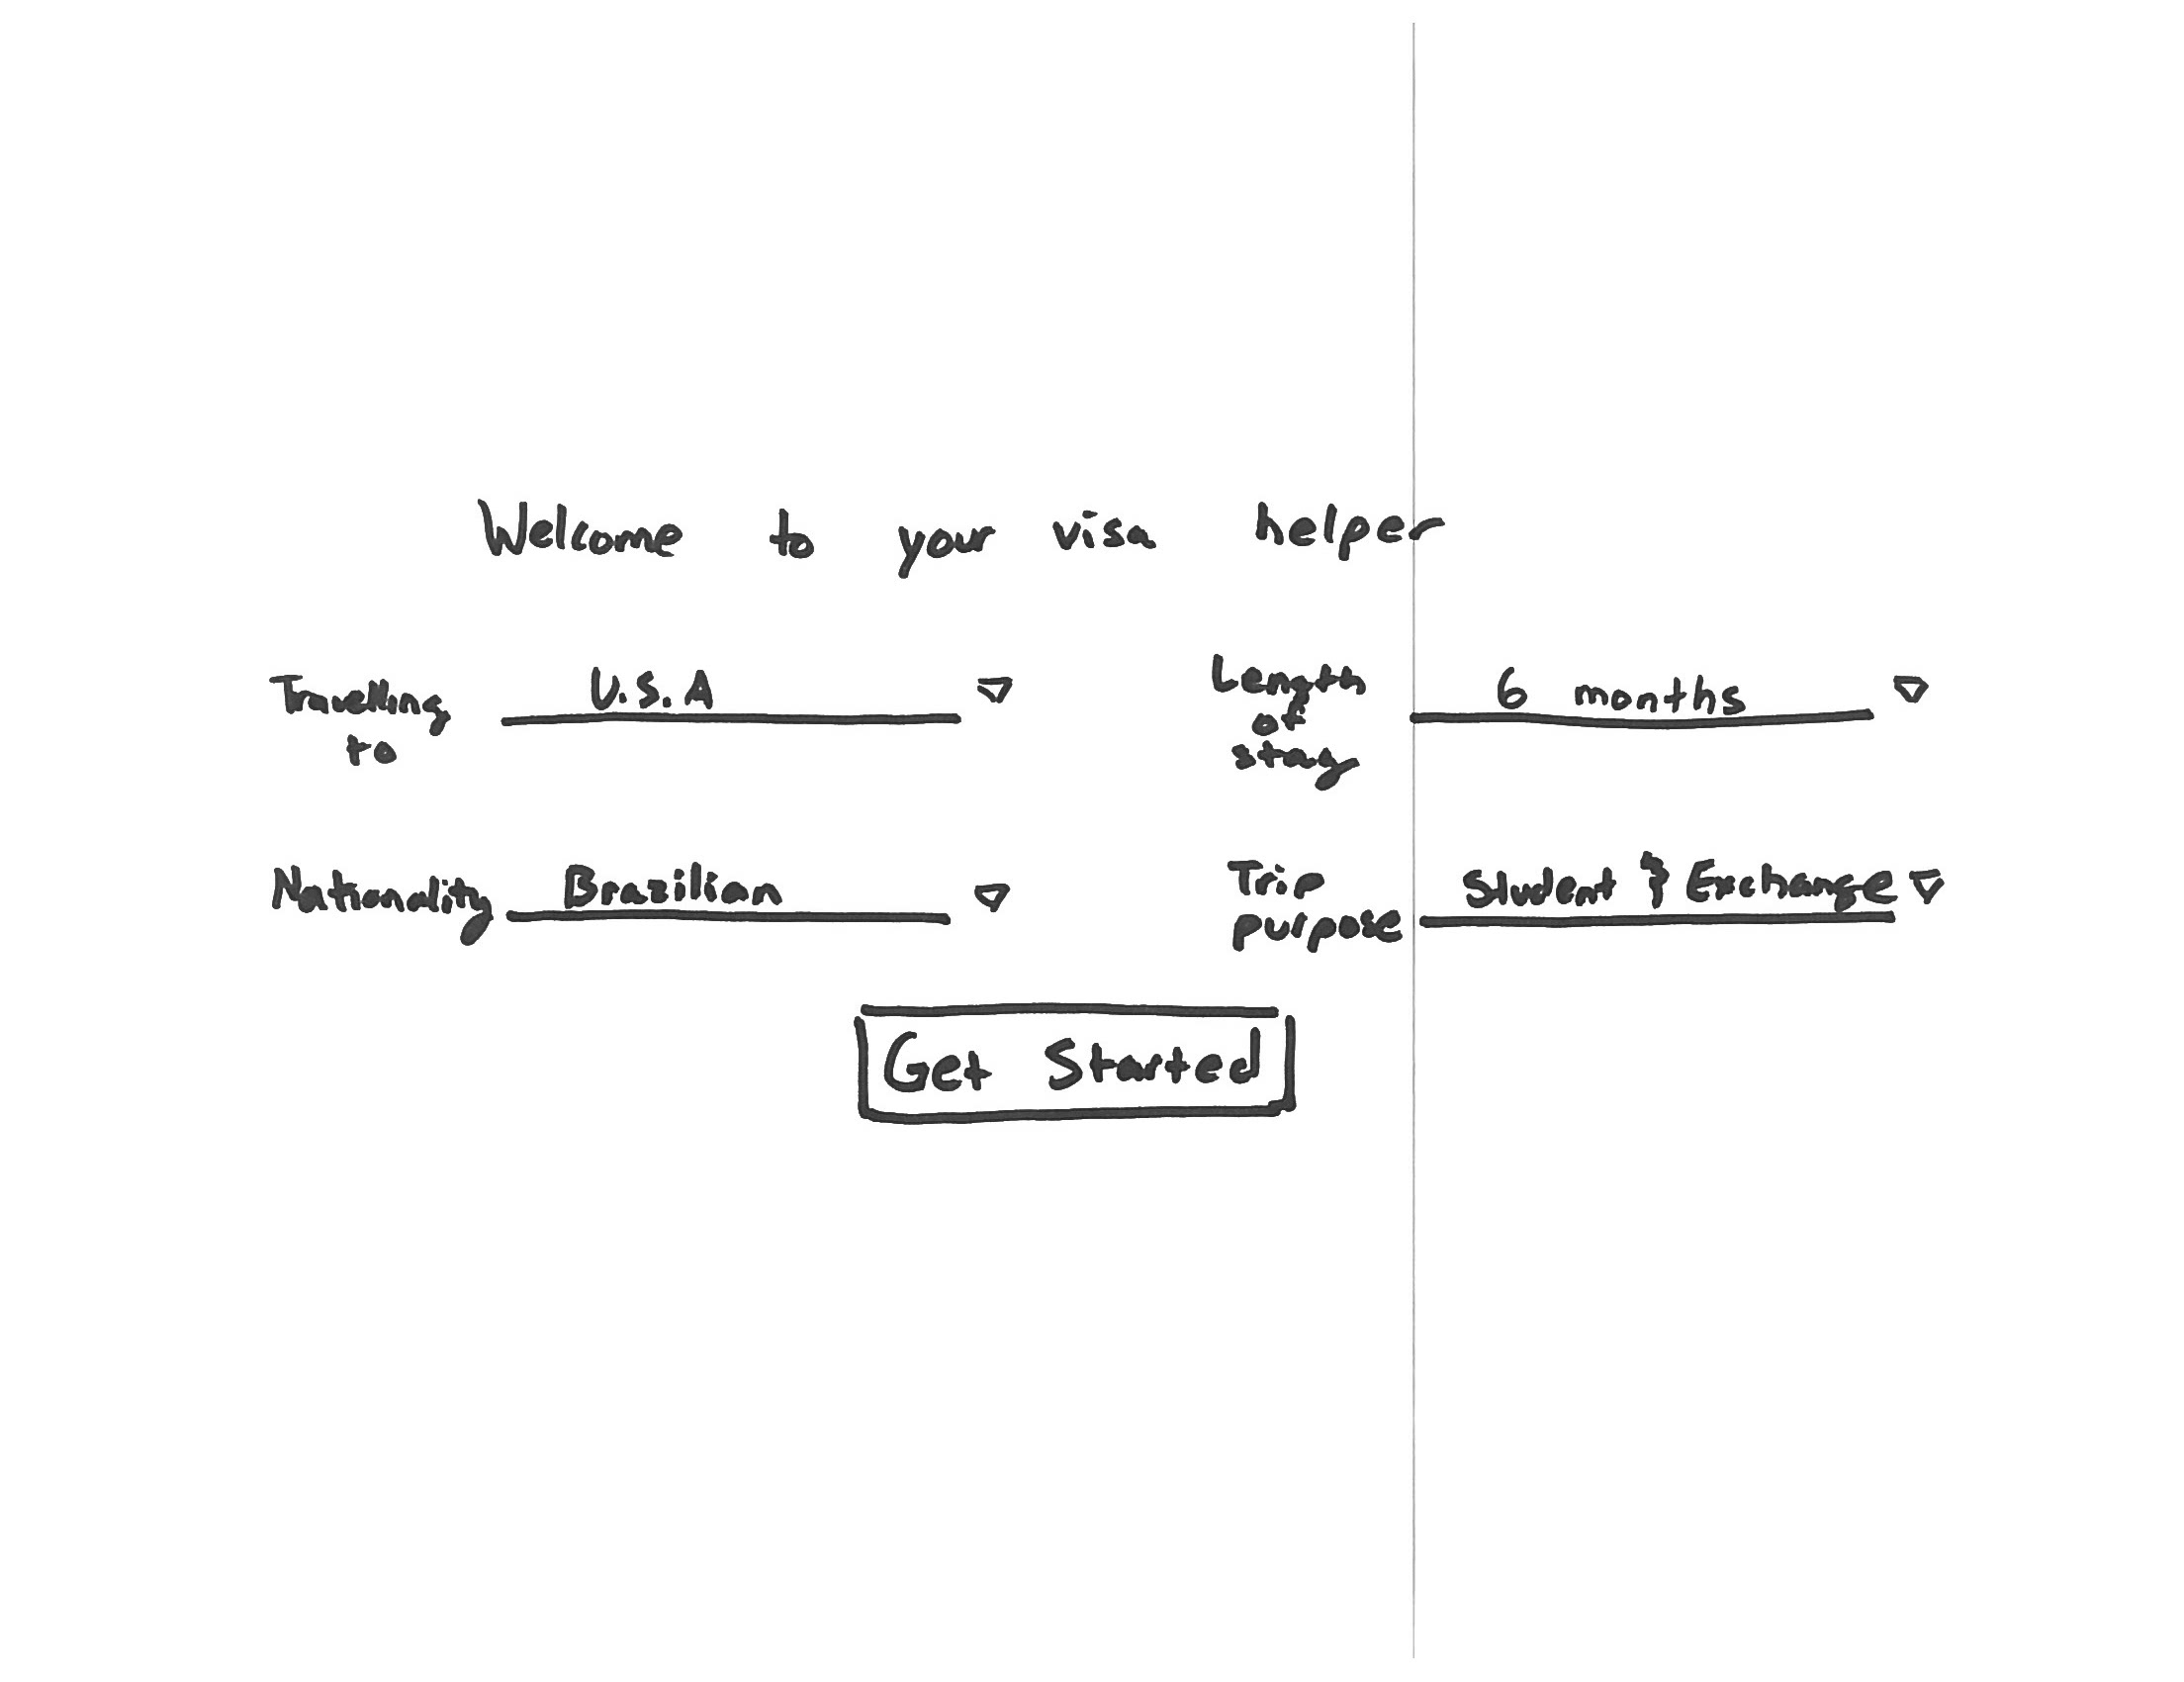 Welcome to your visa helper
Travelling
to
U.S.A
Length
of
stay
6 months
Nationality
Brazilian
Trip
purpose
Student & Exchange
Get Started